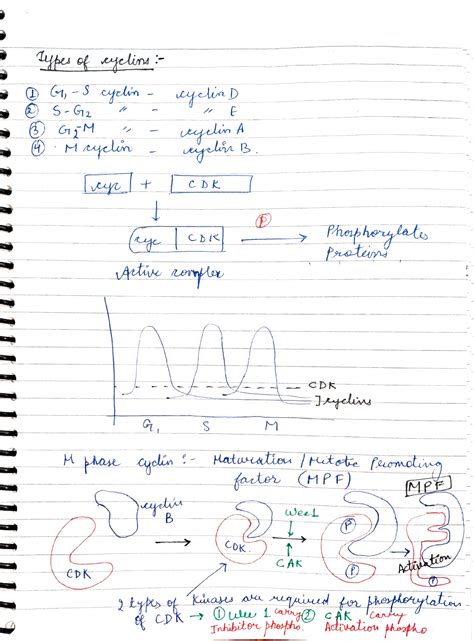 Types of cyclins :-
① G₁-S cyclin - cyclin D
② S-G₂ " - " E
③ G₂-M " - cyclin A
④ M cyclin - cyclin B.
cyc + CDK
cyc CDK Ⓟ Phosphorylates
Proteins
Active complex
CDK
cyclins
G₁ S M
M phase cyclin :- Maturation / Mitotic Promoting
factor (MPF)
MPF
cyclin
B
Wee1
CDK
CDK.
CAK
P
P
Activation
2 types of kinases are required for phosphorylation
of CDK → ① Wee 1 carry ② CAK carry
Inhibitor phospho. Activation phospho